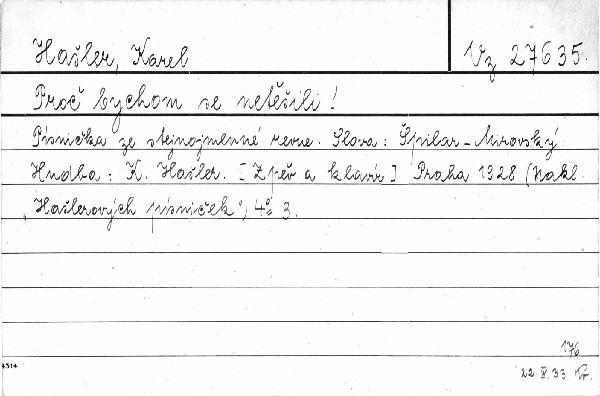 Hašler, Karel Vz 27635.
Proč bychom se netěšili!
Písnička ze stejnojmenné revue. Slova: Špilar-Mirovský
Hudba: K. Hašler. [Zpěv a klavír] Praha 1928 (Nakl.
„Hašlerových písniček“) 4° 3.
176
4314
22. 33 Vr.